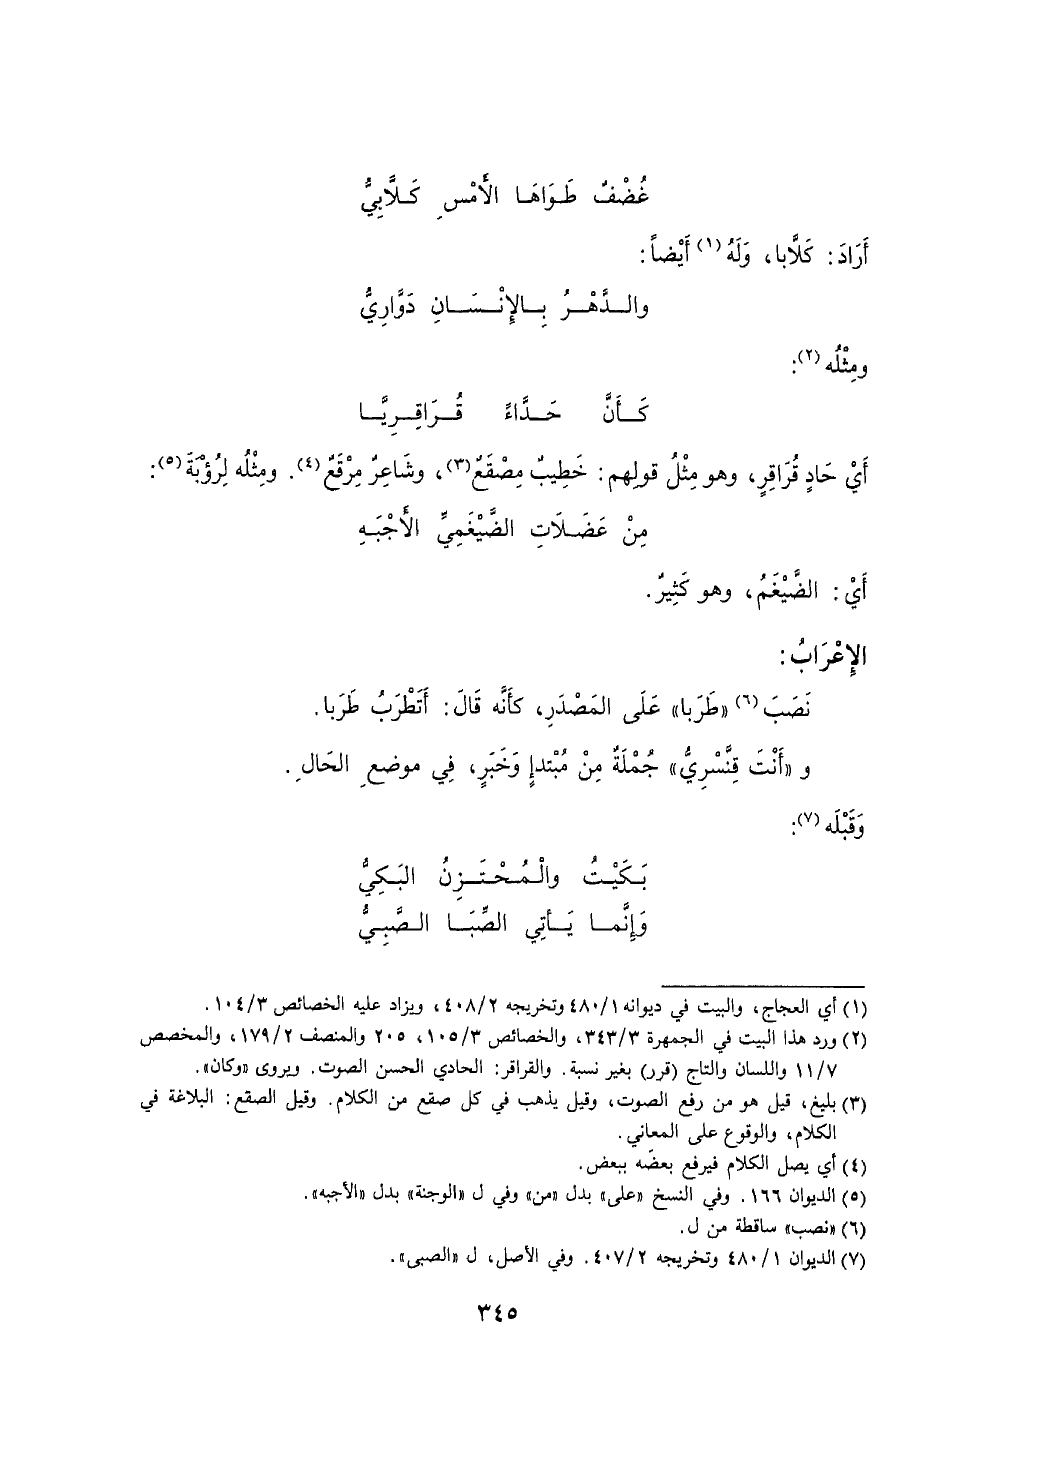 غُضْفٌ طَوَاهَا الأَمْسِ كَلَّابِيُّ
أَرَادَ: كَلَّابا، وَلَهُ(١) أَيْضاً:
والدَّهْرُ بِالإِنْسَانِ دَوَّارِيُّ
ومِثْلُه(٢):
كَأَنَّ حَدَّاءً قُرَاقِرِيَّا
أَيْ حَادٍ قُرَاقِرٍ، وهو مِثْلُ قولِهم: خَطِيبٌ مِصْقَعٌ(٣)، وشَاعِرٌ مِرْقَعٌ(٤). ومِثْلُه لِرُؤْبَةَ(٥):
مِنْ عَضَلَاتِ الضَّيْغَمِيِّ الأَجْبَهِ
أَيْ: الضَّيْغَمُ، وهو كَثِيرٌ.
الإِعْرَابُ:
نَصَبَ(٦) «طَرَبا» عَلَى المَصْدَرِ، كأَنَّه قَالَ: أَتَطْرَبُ طَرَبا.
و «أَنْتَ قِنَّسْرِيُّ» جُمْلَةٌ مِنْ مُبْتدإٍ وَخَبَرٍ، فِي موضعِ الحَالِ.
وَقَبْلَه(٧):
بَكَيْتُ والْمُحْتَزِنُ البَكِيُّ
وَإِنَّما يَأتِي الصِّبَا الصَّبِيُّ
(١) أي العجاج، والبيت في ديوانه ٤٨٠/١ وتخريجه ٤٠٨/٢، ويزاد عليه الخصائص ١٠٤/٣.
(٢) ورد هذا البيت في الجمهرة ٣٤٣/٣، والخصائص ١٠٥/٣، ٢٠٥ والمنصف ١٧٩/٢، والمخصص
١١/٧ واللسان والتاج (قرر) بغير نسبة. والقراقر: الحادي الحسن الصوت. ويروى «وكان».
(٣) بليغ، قيل هو من رفع الصوت، وقيل يذهب في كل صقع من الكلام. وقيل الصقع: البلاغة في
الكلام، والوقوع على المعاني.
(٤) أي يصل الكلام فيرفع بعضَه ببعض.
(٥) الديوان ١٦٦. وفي النسخ «على» بدل «من» وفي ل «الوجنة» بدل «الأجبه».
(٦) «نصب» ساقطة من ل.
(٧) الديوان ٤٨٠/١ وتخريجه ٤٠٧/٢. وفي الأصل، ل «الصبى».
٣٤٥